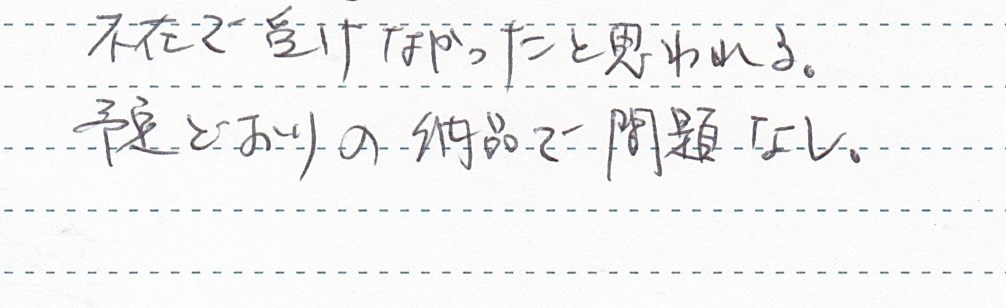 不在で受けなかったと思われる。
予定どおりの納品で問題なし。